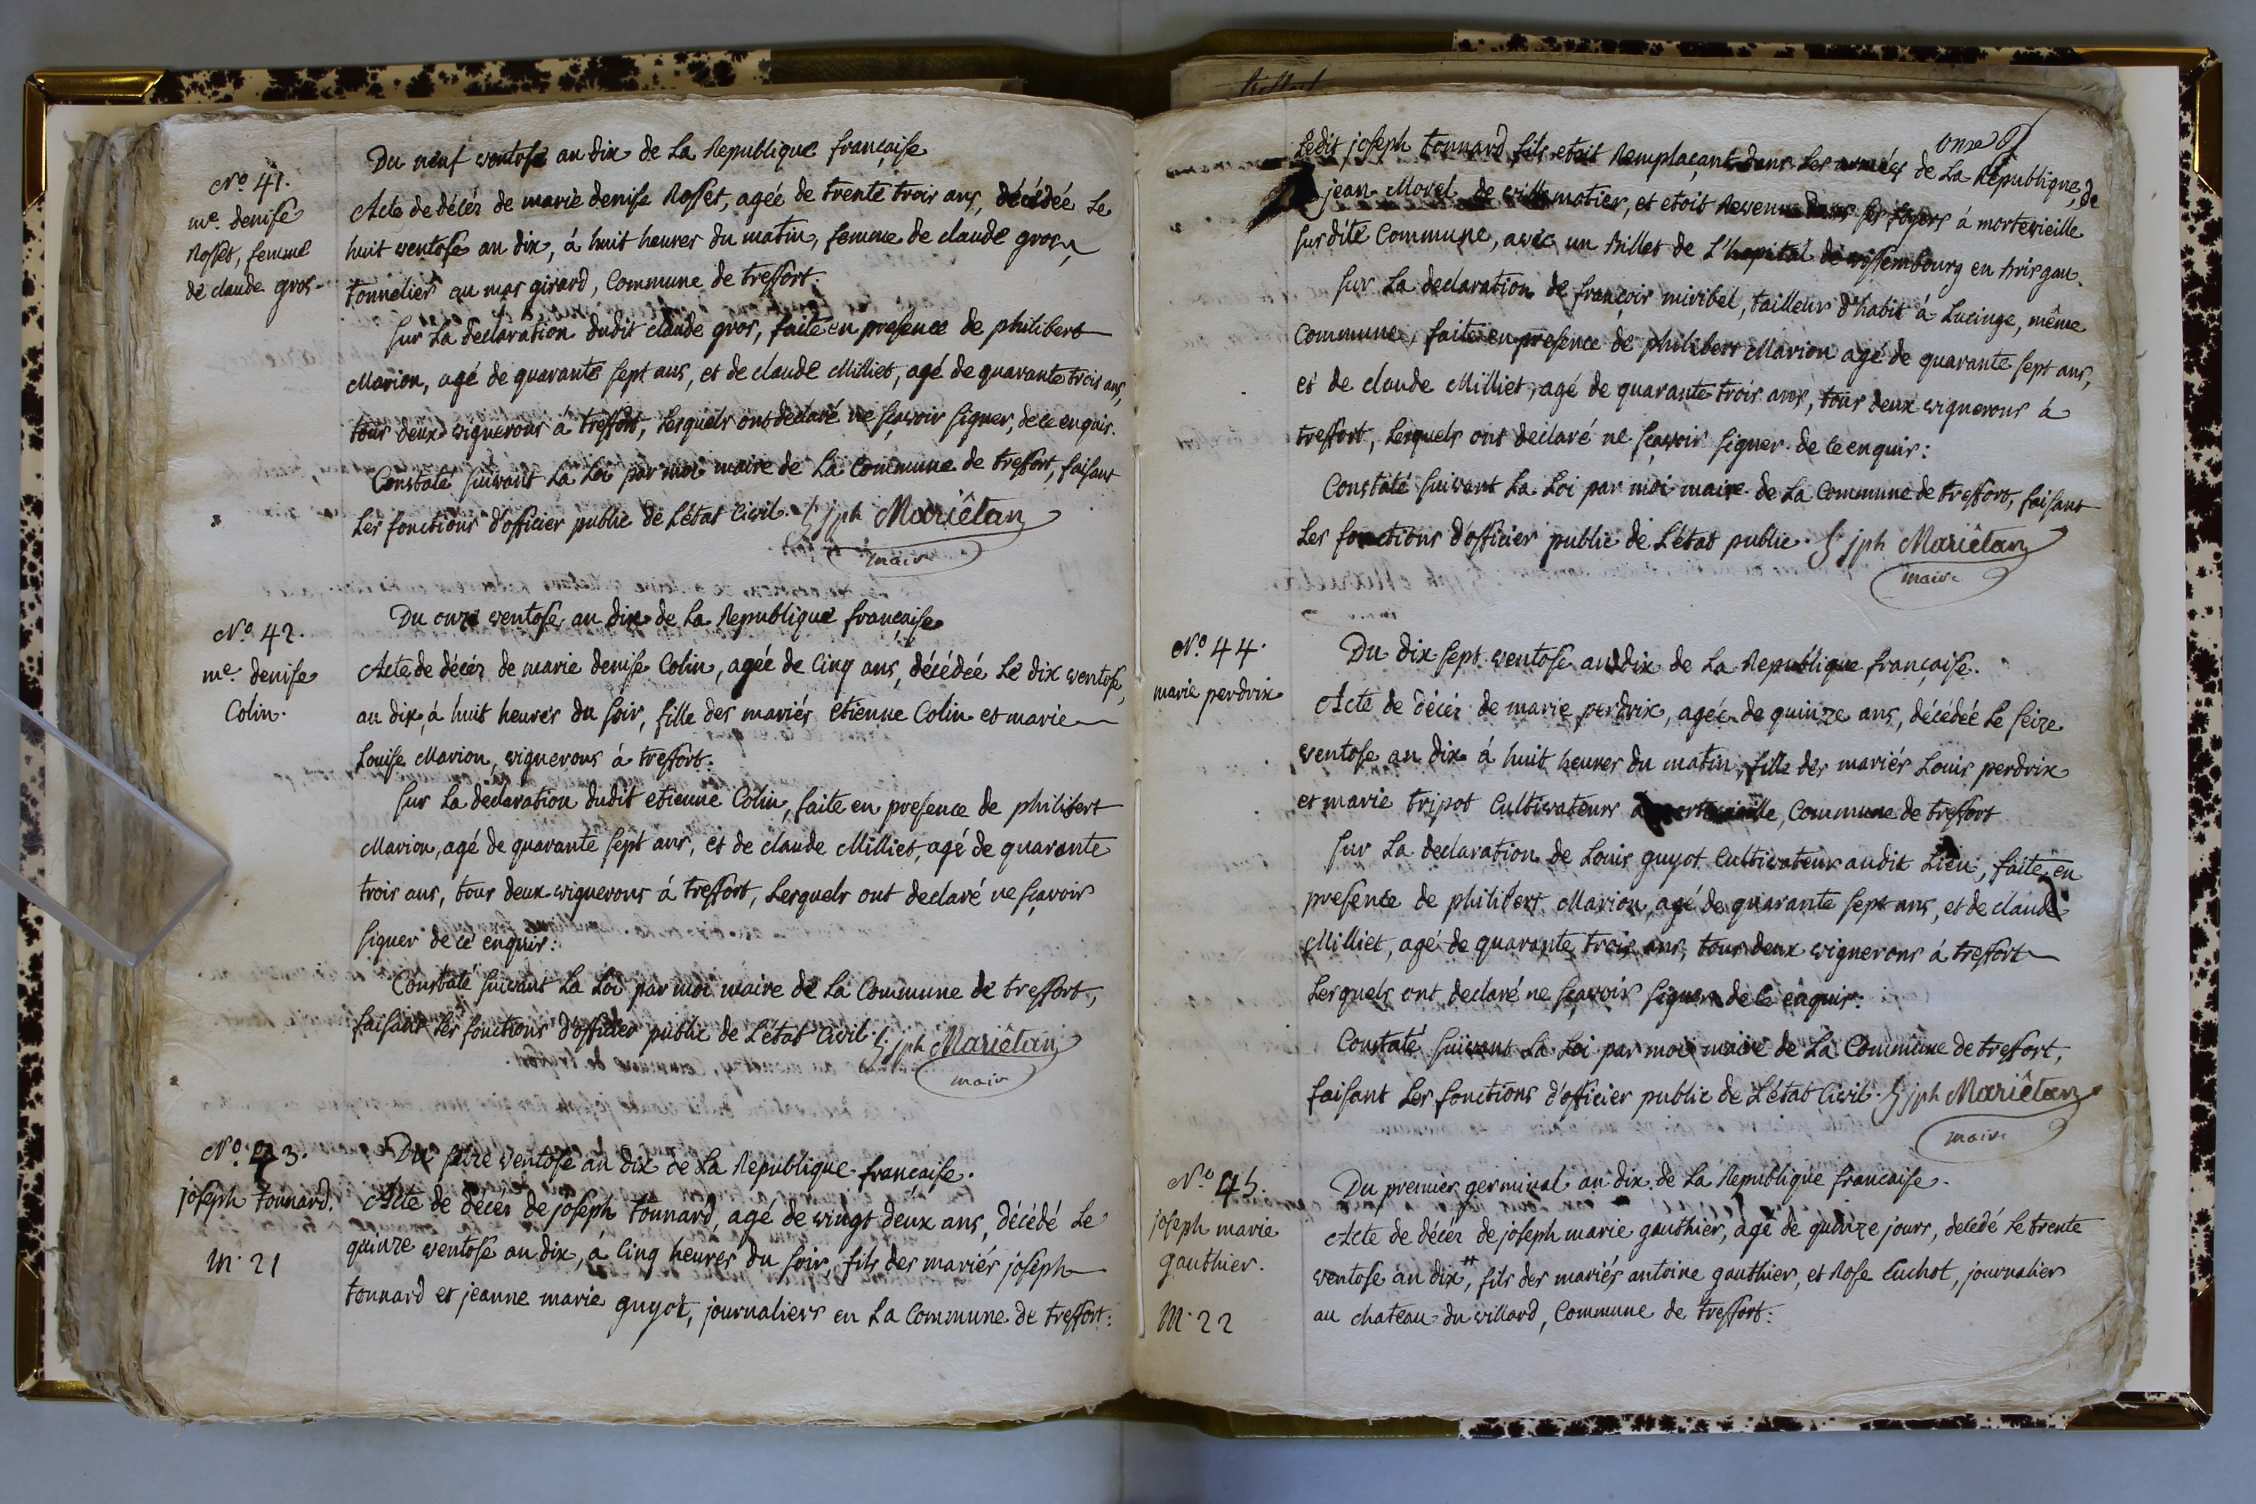 N.o 41.
me. denise
Rosset, femme
de claude gros.
Du neuf ventose an dix de La Republique française
Acte de décés de marie denise Rosset, agée de trente trois ans, décédée Le
huit ventose an dix, á huit heures du matin, femme de claude gros,
tonnelier au mas girard, Commune de treffort.
sur La declaration dudit claude gros, faite en presence de philibert
Marion, agé de quarante sept ans, et de claude Milliet, agé de quarante trois ans,
tous deux vignerons á treffort, Lesquels ont declaré ne sçavoir signer, de ce enquis.
Constaté suivant La Loi par moi maire de La Commune de treffort, faisant
Les fonctions d'officier public de L'état Civil. jph Mariêtan
maire
N.o 42.
me. denise
Colin.
Du onze ventose an dix de La Republique française
Acte de décés de marie denise Colin, agée de Cinq ans, décédée Le dix ventose,
an dix, á huit heures du soir, fille des mariés etienne Colin et marie
Louise Marion, vignerons á treffort.
sur La declaration dudit etienne Colin, faite en presence de philibert
Marion, agé de quarante sept ans, et de claude Milliet, agé de quarante
trois ans, tous deux vignerons á treffort, Lesquels ont declaré ne sçavoir
signer de ce enquis:
Constaté suivant La Loi par moi maire de La Commune de treffort,
faisant Les fonctions d'officier public de L'état Civil. jph Mariêtan
maire
N.o 43.
joseph tonnard.
m. 21
Du seize ventose an dix de La Republique francaise.
Acte de décés de joseph tonnard, agé de vingt deux ans, décédé Le
quinze ventose an dix, á Cinq heures du soir, fils des mariés joseph
tonnard et jeanne marie guyot, journaliers en La Commune de treffort:
onze
Ledit joseph tonnard fils etoit Remplaçant dans Les armées de La Republique, de
jean Morel de villemotier, et etoit Revenu dans ses foyers á mortevieille
surdite Commune, avec un billet de L'hopital de wissembourg en brisgau.
sur La declaration de françois miribel, tailleur d'habit á Lucinge, même
Commune, faite en presence de philibert Marion agé de quarante sept ans,
et de claude Milliet, agé de quarante trois ans, tous deux vignerons á
treffort, Lesquels ont declaré ne sçavoir signer de ce enquis:
Constaté suivant La Loi par moi maire de La Commune de treffort, faisant
Les fonctions d'officier public de L'état public. jph Mariêtan
maire
N.o 44.
marie perdrix
Du dix sept ventose an dix de La Republique française.
Acte de décés de marie perdrix, agée de quinze ans, décédée Le seize
ventose an dix á huit heures du matin, fille des mariés Louis perdrix
et marie tripot Cultivateurs a mortevieille, Commune de treffort
sur La declaration de Louis guyot Cultivateur audit Lieu, faite en
presence de philibert Marion, agé de quarante sept ans, et de claude
Milliet, agé de quarante trois ans, tous deux vignerons á treffort
Lesquels ont declaré ne sçavoir signer de ce enquis:
Constaté suivant La Loi par moi maire de La Commune de treffort,
faisant Les fonctions d'officier public de L'état Civil. jph Mariêtan
maire
N.o 45.
joseph marie
gauthier.
m. 22
Du premier germinal an dix de La Republique francaise.
Acte de décés de joseph marie gauthier, agé de quinze jours, decédé Le trente
ventose an dix, fils des mariés antoine gauthier, et Rose Cuchot, journalier
au chateau du villard, Commune de treffort: